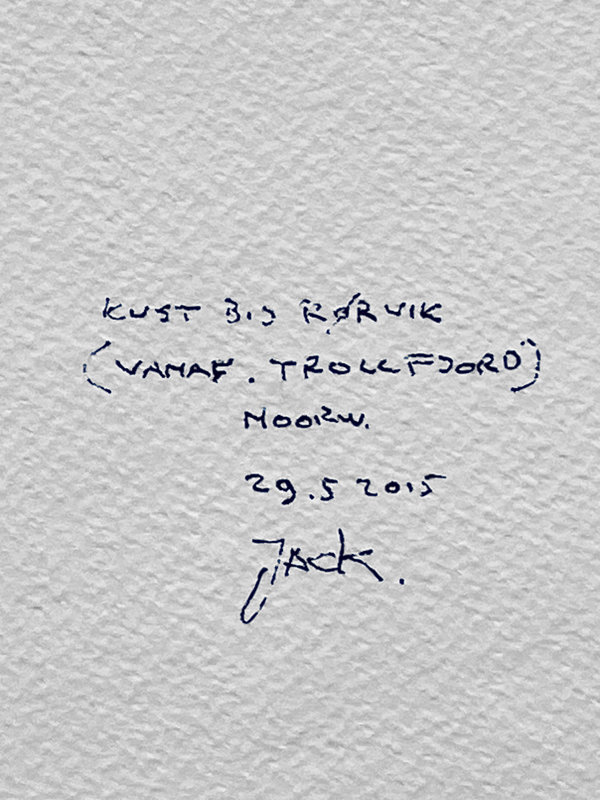 KUST BIJ RØRVIK
(VANAF. TROLLFJORD")
NOORW.
29.5 2015
JACK.